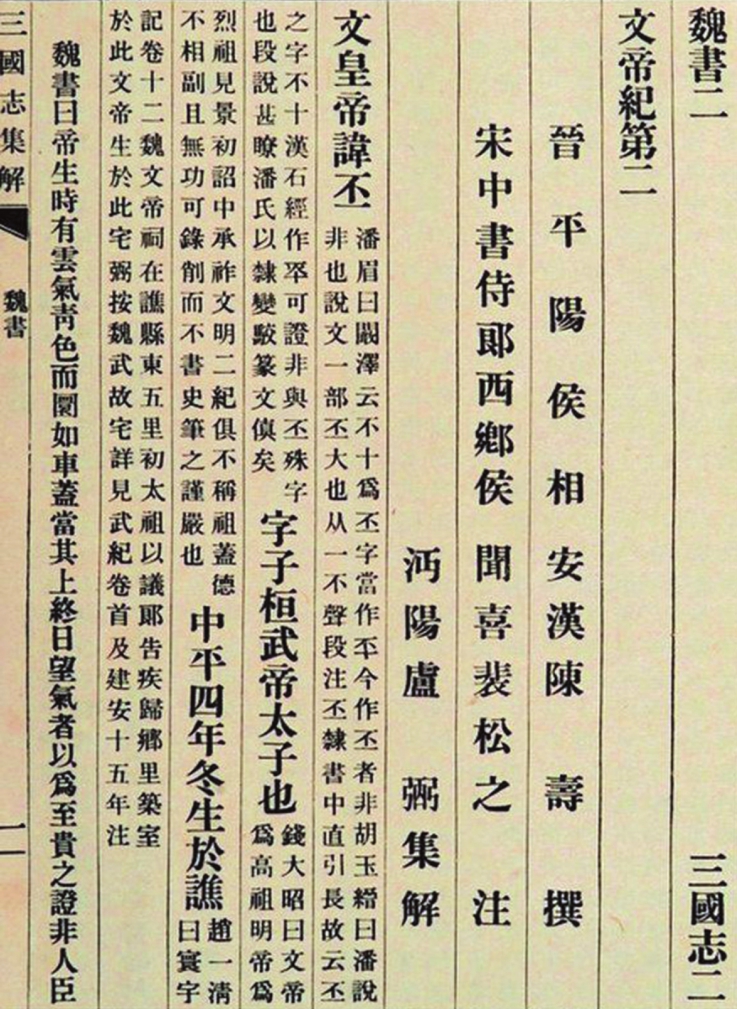 魏書二 三國志二
文帝紀第二
晉平陽侯相安漢陳壽撰
宋中書侍郎西鄉侯聞喜裴松之注
沔陽盧弼集解
文皇帝諱丕
潘眉曰闞澤云不十爲丕字當作㔻今作丕者非胡玉縉曰潘說
非也說文一部丕大也从一不聲段注丕隸書中直引長故云丕
之字不十漢石經作㔻可證非與丕殊字
也段說甚瞭潘氏以隸變駮篆文傎矣
字子桓武帝太子也
錢大昭曰文帝
爲高祖明帝爲
烈祖見景初詔中承祚文明二紀俱不稱祖蓋德
不相副且無功可錄削而不書史筆之謹嚴也
中平四年冬生於譙
趙一清
曰寰宇
記卷十二魏文帝祠在譙縣東五里初太祖以議郎告疾歸鄉里築室
於此文帝生於此宅弼按魏武故宅詳見武紀卷首及建安十五年注
魏書曰帝生時有雲氣靑色而圜如車蓋當其上終日望氣者以爲至貴之證非人臣
三國志集解 魏書 一